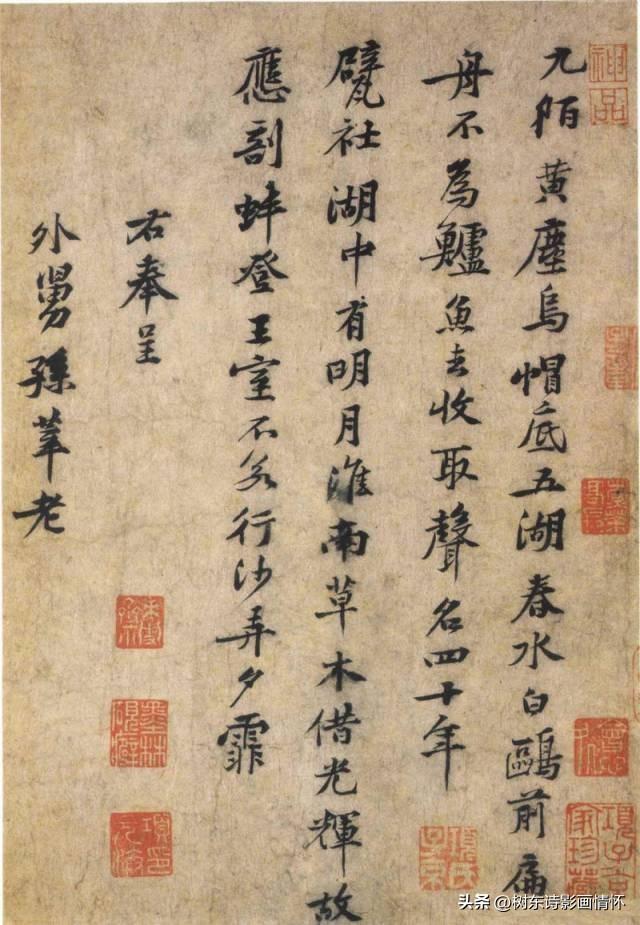 神品
九陌黄塵烏帽底五湖春水白鷗前扁
舟不為鱸魚去收取聲名四十年
甓社湖中有明月淮南草木借光輝故
應剖蚌登王室不若行沙弄夕霏
右奉呈
外舅孫莘老
头条 @树东诗影画情怀